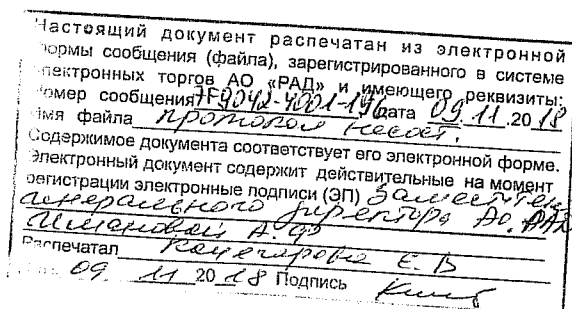 Настоящий документ распечатан из электронной
формы сообщения (файла), зарегистрированного в системе
электронных торгов АО «РАД» и имеющего реквизиты:
Номер сообщения 7F9042-4001-196 дата 09.11.2018
Имя файла протокол несост.
Содержимое документа соответствует его электронной форме.
Электронный документ содержит действительные на момент
регистрации электронные подписи (ЭП) Заместитель
генерального директора АО "РАД"
Имановой А.Ф
Распечатал Е.В
09. 11 2018 Подпись